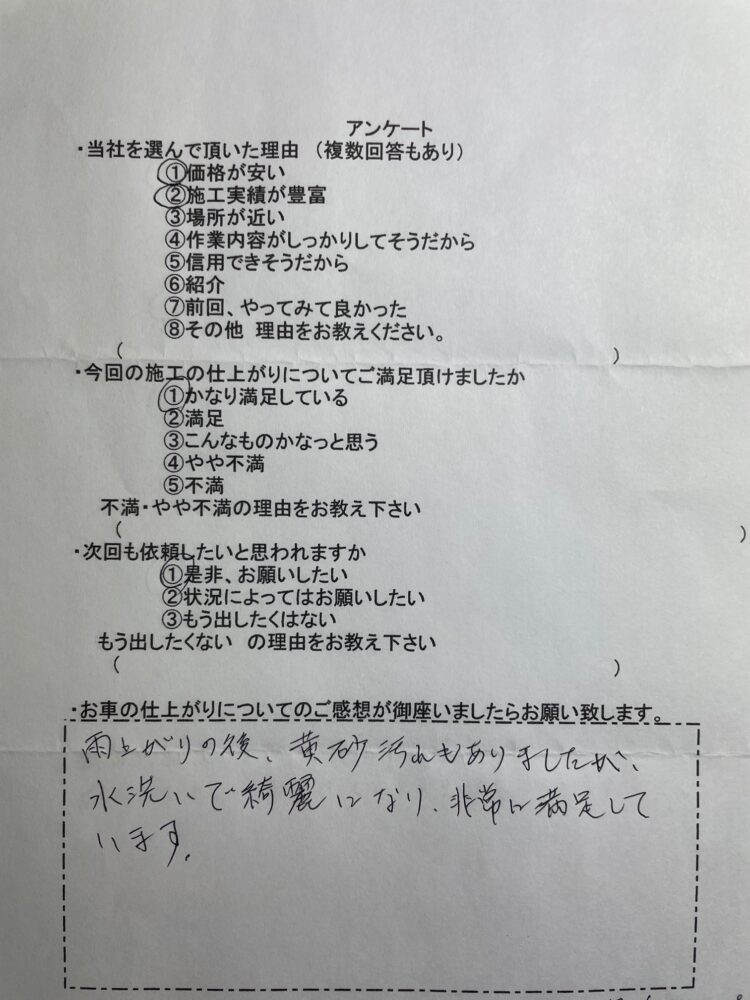 アンケート
・当社を選んで頂いた理由 （複数回答もあり）
①価格が安い
②施工実績が豊富
③場所が近い
④作業内容がしっかりしてそうだから
⑤信用できそうだから
⑥紹介
⑦前回、やってみて良かった
⑧その他 理由をお教えください。
（ ）
・今回の施工の仕上がりについてご満足頂けましたか
①かなり満足している
②満足
③こんなものかなっと思う
④やや不満
⑤不満
不満・やや不満の理由をお教え下さい
（ ）
・次回も依頼したいと思われますか
①是非、お願いしたい
②状況によってはお願いしたい
③もう出したくはない
もう出したくない の理由をお教え下さい
（ ）
・お車の仕上がりについてのご感想が御座いましたらお願い致します。
雨上がりの後、黄砂汚れもありましたが、
水洗いで綺麗になり、非常に満足して
います。